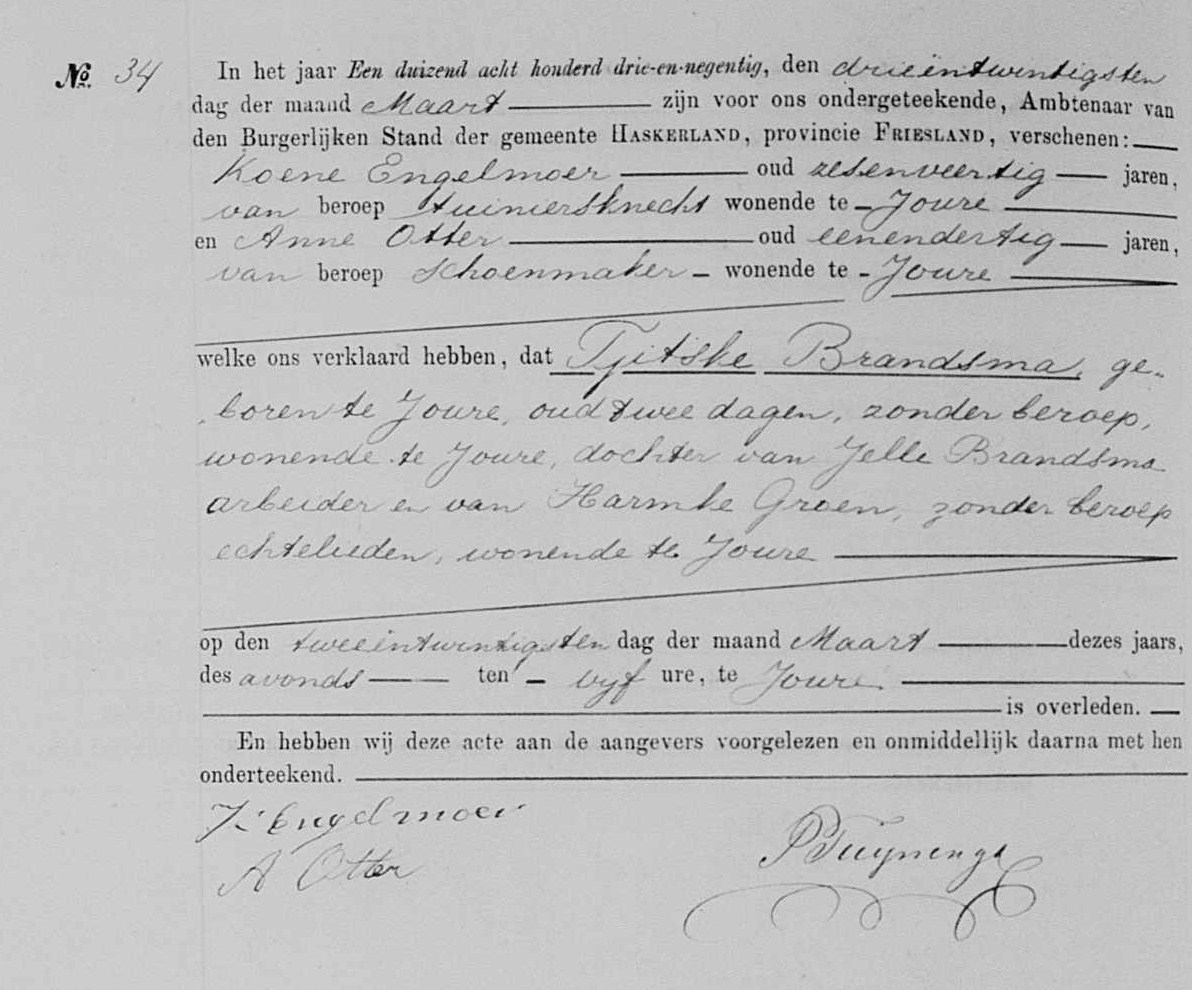 No. 34 In het jaar Een duizend acht honderd drie-en-negentig, den drieëntwintigsten
dag der maand Maart zijn voor ons ondergeteekende, Ambtenaar van
den Burgerlijken Stand der gemeente HASKERLAND, provincie FRIESLAND, verschenen:
Koene Engelmoer oud zesenveertig jaren,
van beroep tuiniersknecht wonende te Joure
en Anne Otter oud eenendertig jaren,
van beroep schoenmaker wonende te Joure
welke ons verklaard hebben, dat Tjitske Brandsma, ge-
boren te Joure, oud twee dagen, zonder beroep,
wonende te Joure, dochter van Jelle Brandsma
arbeider en van Harmke Groen, zonder beroep
echtelieden, wonende te Joure
op den tweeëntwintigsten dag der maand Maart dezes jaars,
des avonds ten vijf ure, te Joure
is overleden.
En hebben wij deze acte aan de aangevers voorgelezen en onmiddellijk daarna met hen
onderteekend.
K Engelmoer
A Otter
P Tuynenga